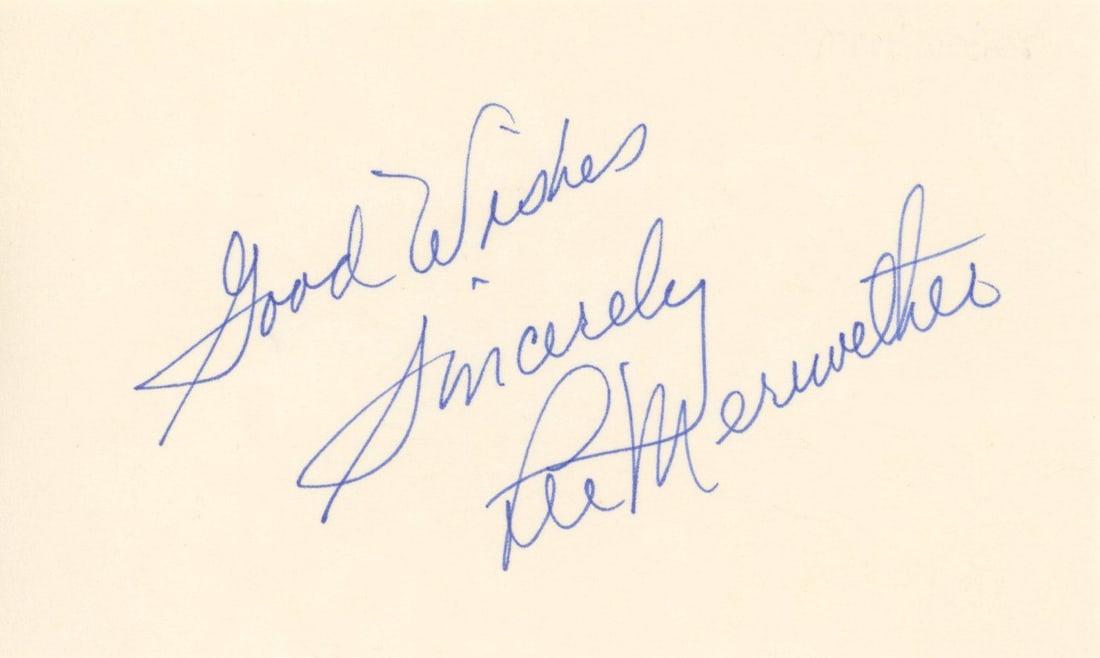 Good Wishes
Sincerely
Lee Meriwether